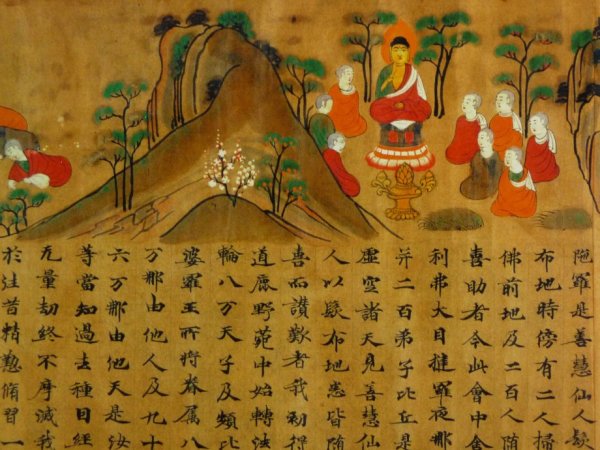 陁羅是善慧仙人髮
布地時傍有二人掃
佛前地及二百人随
喜助者今此會中舍
利弗大目揵羅夜那
并二百弟子比丘是
虛空諸天見善慧仙
人以髮布地悉皆随
喜而讚歎者我初得
道鹿野苑中始轉法
輪八万天子及頻比
婆羅王所將眷属八
万那由他人及九十
六万那由他天是汝
等當知過去種因經
无量劫終不摩滅我
於往昔精懃脩習一